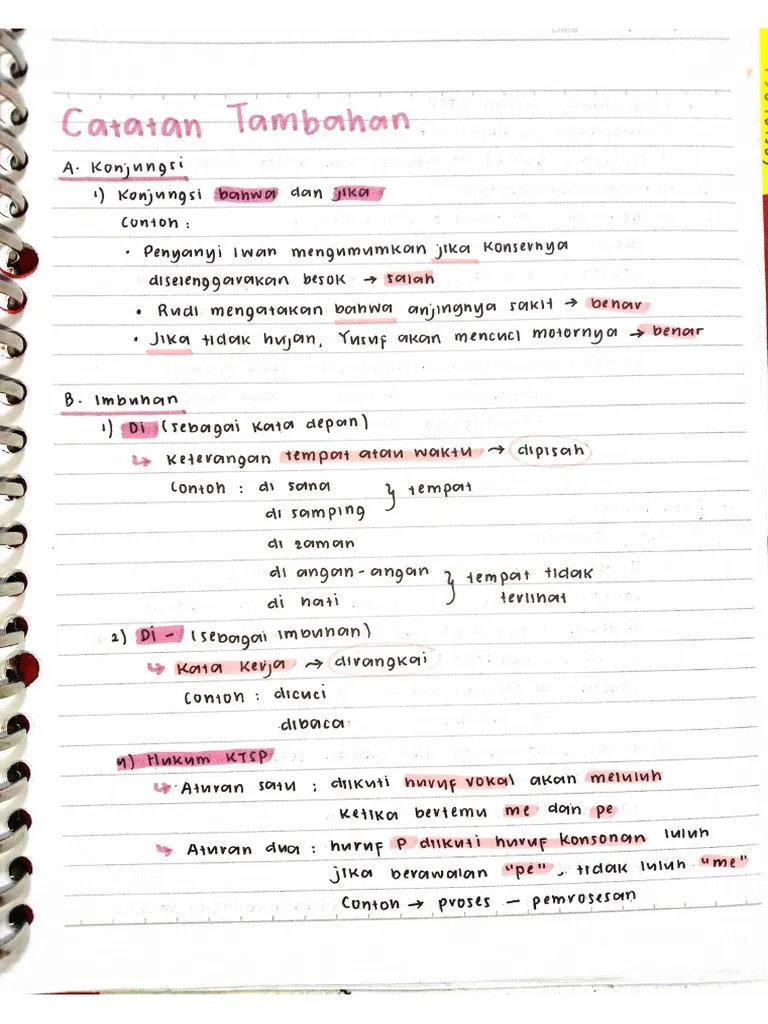 Catatan Tambahan
A. Konjungsi
1) Konjungsi bahwa dan jika
Contoh :
• Penyanyi Iwan mengumumkan jika konsernya
diselenggarakan besok → salah
• Rudi mengatakan bahwa anjingnya sakit → benar
• Jika tidak hujan, Yusuf akan mencuci motornya → benar
B. Imbuhan
1) Di (sebagai kata depan)
↳ Keterangan tempat atau waktu → dipisah
Contoh : di sana } tempat
di samping
di zaman
di angan-angan } tempat tidak
di hati terlihat
2) Di - (sebagai imbuhan)
↳ Kata kerja → dirangkai
Contoh : dicuci
dibaca
4) Hukum KTSP
↳ Aturan satu : diikuti huruf vokal akan meluluh
ketika bertemu me dan pe
↳ Aturan dua : huruf P diikuti huruf konsonan luluh
jika berawalan "pe", tidak luluh "me"
Contoh → proses – pemrosesan